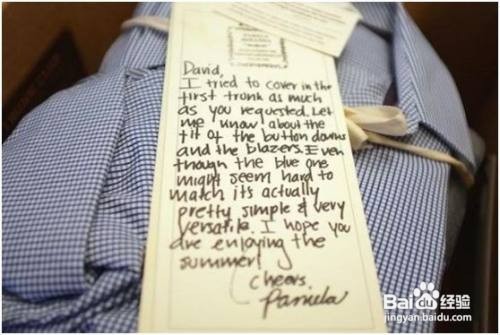 David,
I tried to cover in the
first trunk as much
as you requested. Let
me know about the
fit of the button downs
and the blazers. Even
though the blue one
might seem hard to
match its actually
pretty simple & very
versatile. I hope you
are enjoying the
summer!
Cheers,
Pamela
Baidu经验
jingyan.baidu.com